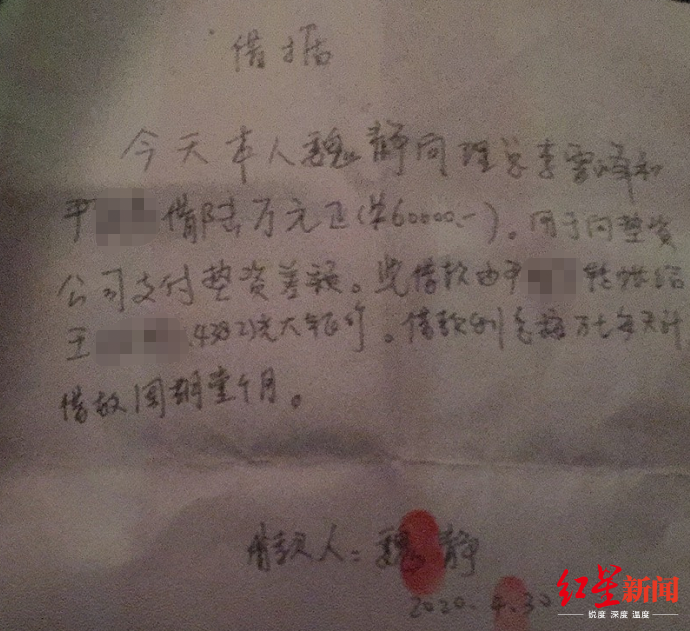 借据
今天本人魏静向理总李雪峰和
平 借陆万元正(¥60000.-)。用于向垫资
公司支付垫资差额。此借款由平 转账给
王 (4382)光大银行。借款利息按万七每天计
借款周期壹个月。
借款人:魏静
2020.4.30
红星新闻
锐度 深度 温度